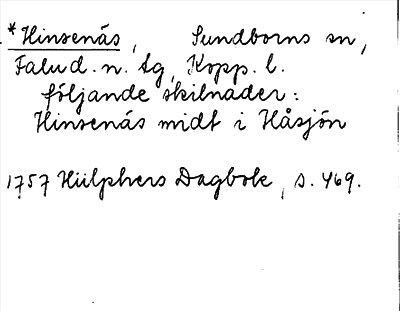 *Hinsenäs, Sundborns sn,
Falu d. n. tg, Kopp. l.
följande skilnader:
Hinsenäs midt i Håsjön
1757 Hülphers Dagbok, s. 469.